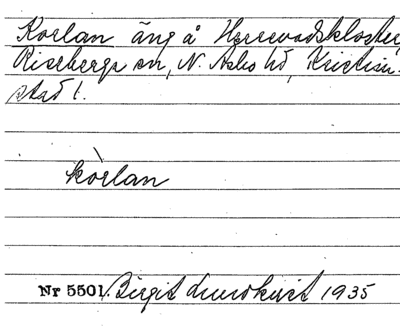 Korlan äng å Herrevadskloster,
Riseberga sn, N. Åsbo hd, Kristian-
stad l.
kòrlan
Nr 5501. Birgit Lundkvist 1935